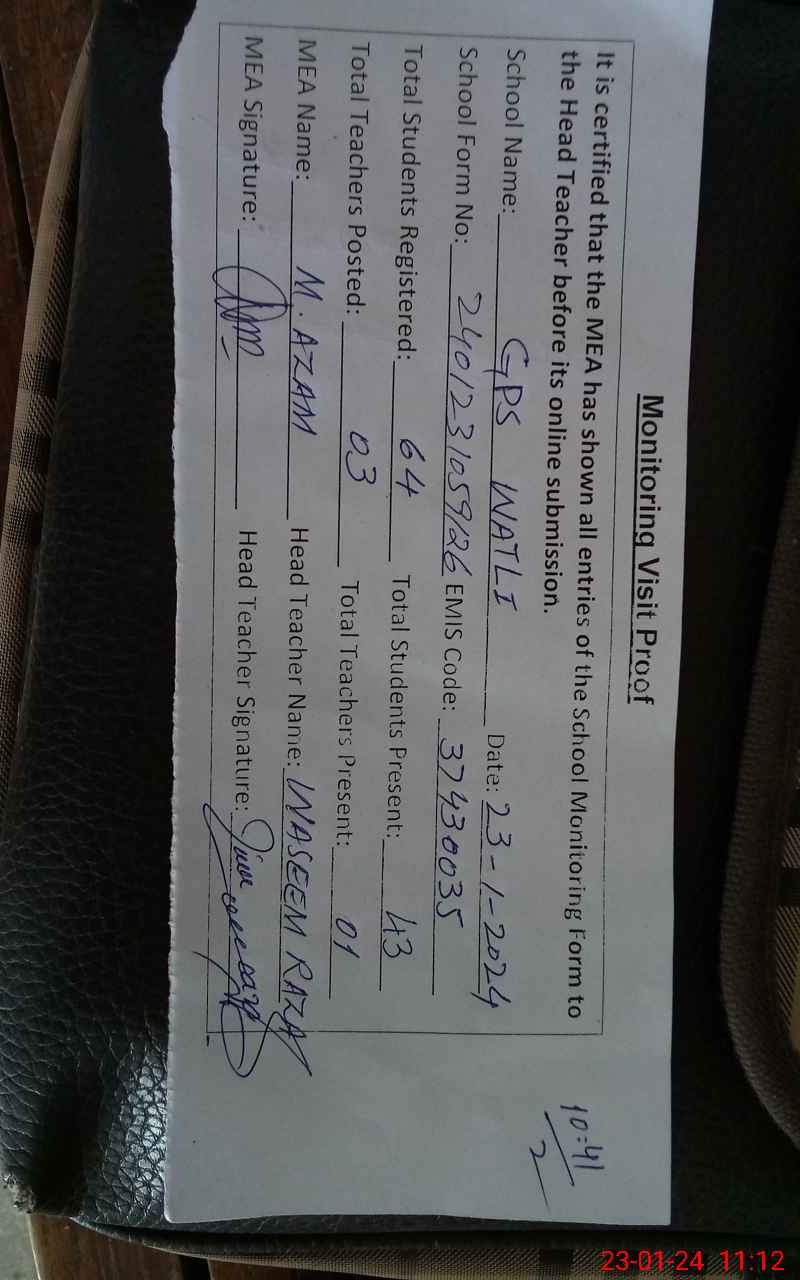 Monitoring Visit Proof
It is certified that the MEA has shown all entries of the School Monitoring Form to
the Head Teacher before its online submission.
School Name: GPS WATLI Date: 23-1-2024
School Form No: 240123105926 EMIS Code: 37430035
Total Students Registered: 64 Total Students Present: 43
Total Teachers Posted: 03 Total Teachers Present: 01
MEA Name: M. AZAM Head Teacher Name: WASEEM RAZA
MEA Signature: Head Teacher Signature:
10:41
2
23-01-24 11:12